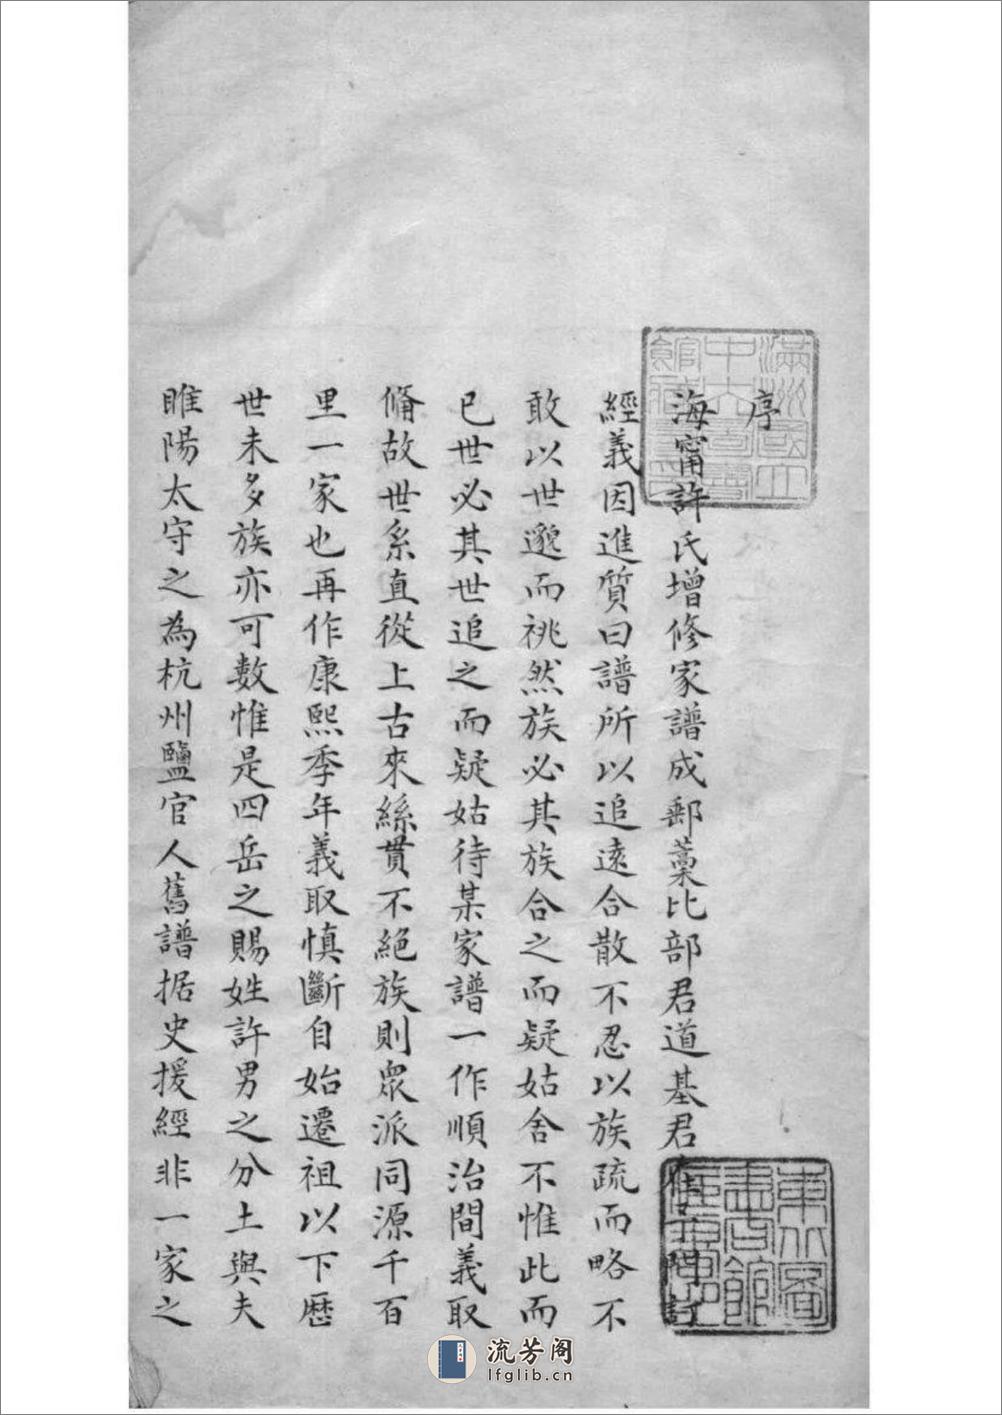 序
海甯許氏增修家譜成郵藁比部君道基君在門訂
經義因進質曰譜所以追逺合散不忍以族疏而略不
敢以世邈而祧然族必其族合之而疑姑舍不惟此而
已世必其世追之而疑姑待某家譜一作順治間義取
脩故世系直從上古來絲貫不絕族則衆派同源千百
里一家也再作康熙季年義取慎斷自始遷祖以下歷
世未多族亦可數惟是四岳之賜姓許男之分土與夫
睢陽太守之為杭州鹽官人舊譜据史援經非一家之
滿洲國立中央圖書館籌備處
東北圖書館所藏
流芳阁
lfglib.cn